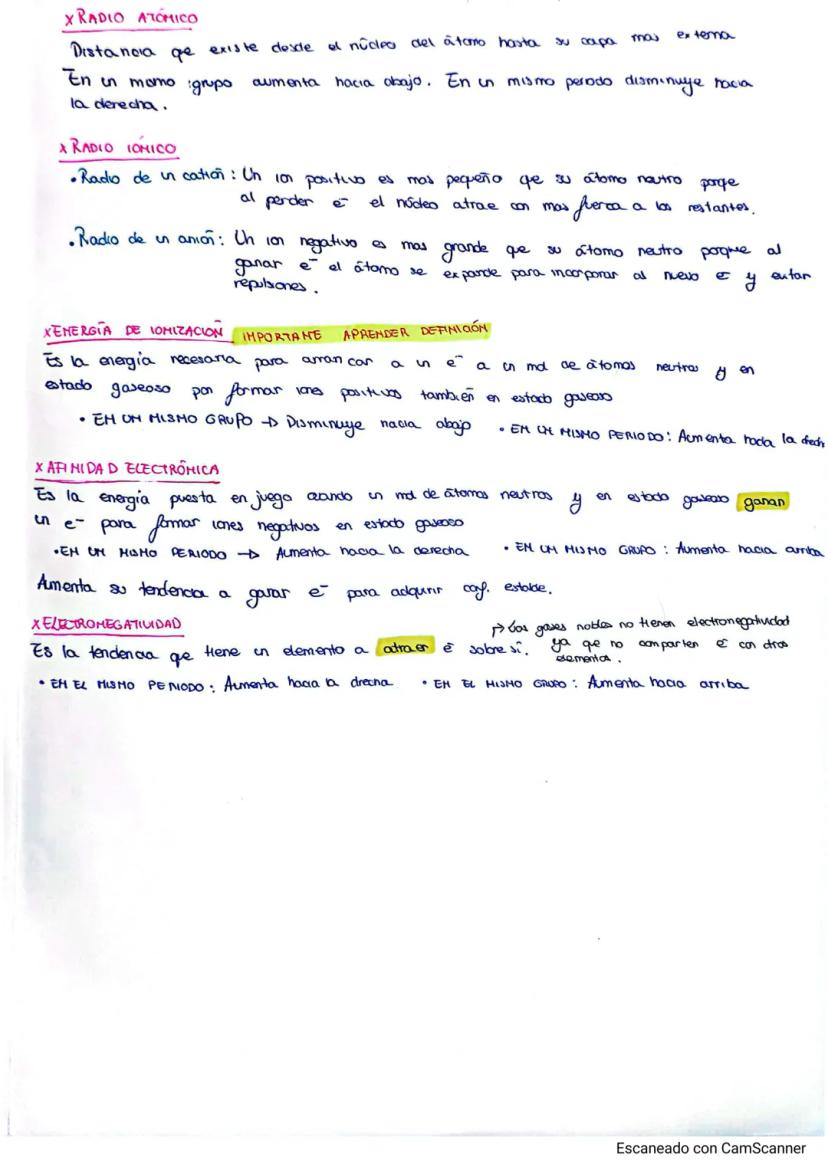 x RADIO ATÓMICO
Distancia qe existe desde el núcleo del átomo hasta su capa mas externa
En un mismo grupo aumenta hacia abajo. En un mismo periodo disminuye hacia
la derecha.
x RADIO IÓNICO
• Radio de un catión: Un ion positivo es mas pequeño qe su átomo neutro porqe
al perder e⁻ el núcleo atrae con mas fuerza a los restantes.
• Radio de un anión: Un ion negativo es mas grande que su átomo neutro porque al
ganar e⁻ el átomo se expande para incorporar al nuevo e⁻ y evitar
repulsiones.
x ENERGÍA DE IONIZACIÓN IMPORTANTE APRENDER DEFINICIÓN
Es la energía necesaria para arrancar a un e⁻ a un mol de átomos neutros y en
estado gaseoso para formar iones positivos también en estado gaseoso
• EN UN MISMO GRUPO → Disminuye hacia abajo • EN UN MISMO PERIODO: Aumenta hacia la drech
x AFINIDAD ELECTRÓNICA
Es la energía puesta en juego cuando un mol de átomos neutros y en estado gaseoso ganan
un e⁻ para formar iones negativos en estado gaseoso
• EN UN MISMO PERIODO → Aumenta hacia la derecha • EN UN MISMO GRUPO: Aumenta hacia arriba
Aumenta su tendencia a ganar e⁻ para adquirir cof. estable.
x ELECTROMEGATIVIDAD
↱ Los gases nobles no tienen electronegatividad
Es la tendencia qe tiene un elemento a atraer e⁻ sobre sí. ya qe no comparten e⁻ con otros
elementos.
• EN EL MISMO PERIODO: Aumenta hacia la drecha • EN EL MISMO GRUPO: Aumenta hacia arriba
Escaneado con CamScanner